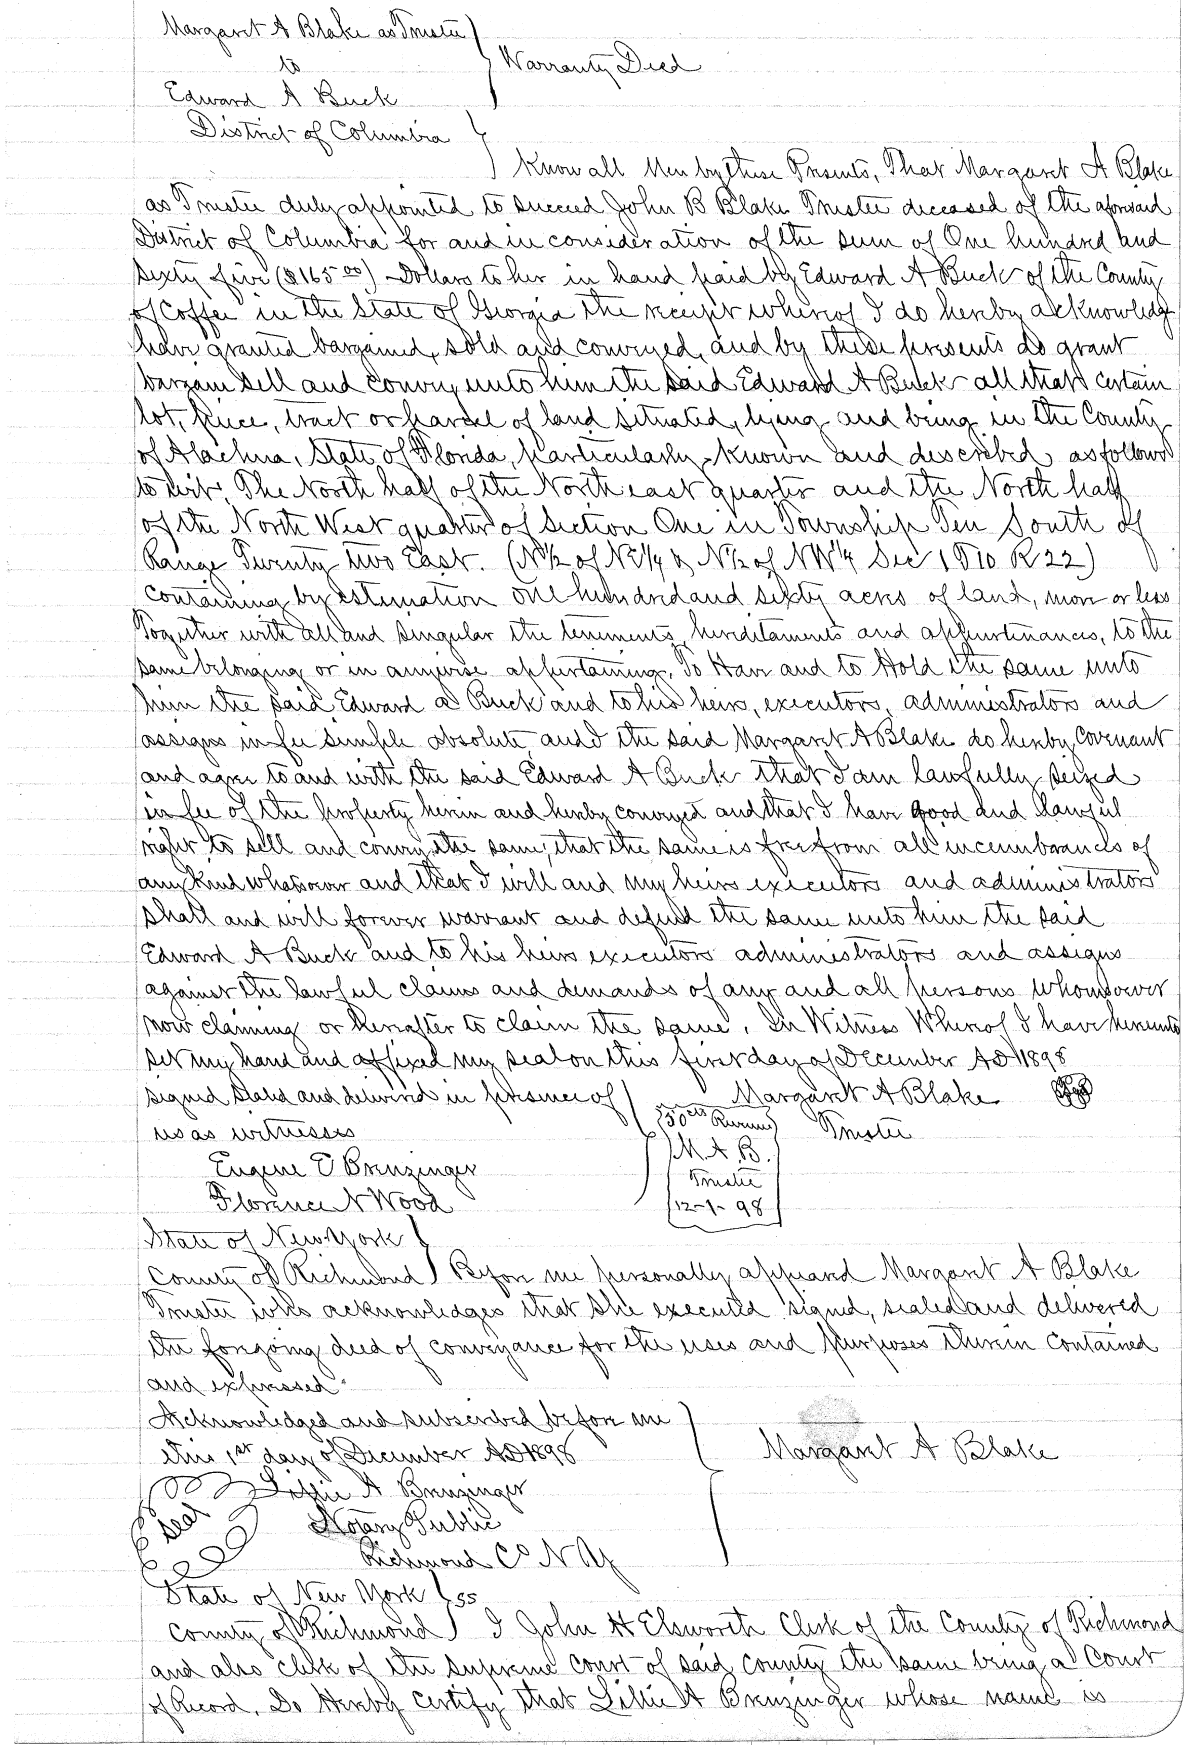 Margaret A Blake as Trustee
to
Warranty Deed
Edward A Buck
District of Columbia
Know all Men by these Presents, That Margaret A Blake
as Trustee duly appointed to succeed John B Blake Trustee deceased of the aforesaid
District of Columbia for and in consideration of the sum of One hundred and
sixty five ($165 00) Dollars to her in hand paid by Edward A Buck of the County
of Coffee in the State of Georgia the receipt whereof I do hereby acknowledge
have granted bargained, sold and conveyed, and by these presents do grant
bargain sell and convey unto him the said Edward A Buck all that certain
lot, piece, tract or parcel of land situated, lying and being in the County
of Alachua, State of Florida, particularly known and described as follows
to wit, The North half of the North east quarter and the North half
of the North West quarter of Section One in Township Ten South of
Range Twenty two East. (N½ of NE¼ & N½ of NW¼ Sec 1 T10 R22)
containing by estimation one hundred and sixty acres of land, more or less
Together with all and singular the tenements, hereditaments and appurtenances, to the
same belonging or in anywise appertaining, To Have and to Hold the same unto
him the said Edward a Buck and to his heirs, executors, administrators and
assigns in fee simple absolute and I the said Margaret A Blake do hereby covenant
and agree to and with the said Edward A Buck that I am lawfully seized
in fee of the property herein and hereby conveyed and that I have good and lawful
right to sell and convey the same, that the same is free from all incumbrances of
any kind whatsoever and that I will and my heirs executors and administrators
shall and will forever warrant and defend the same unto him the said
Edward A Buck and to his heirs executors administrators and assigns
against the lawful claims and demands of any and all persons whomsoever
now claiming or hereafter to claim the same. In Witness Whereof I have hereunto
set my hand and affixed my seal on this first day of December AD 1898
signed sealed and delivered in presence of Margaret A Blake Seal
us as witnesses 50cts Revenue Trustee
Eugene E Brenzinger M. A. B.
Trustee
Florence N Wood 12-1-98
State of New York
County of Richmond Before me personally appeared Margaret A Blake
Trustee who acknowledges that she executed signed, sealed and delivered
the foregoing deed of conveyance for the uses and purposes therein contained
and expressed
Acknowledged and subscribed before me
this 1st day of December AD 1898 Margaret A Blake
Lillie A Brenzinger
Seal Notary Public
Richmond Co N Y
State of New York ss
County of Richmond I John H Elsworth Clerk of the County of Richmond
and also clerk of the supreme court of said county the same being a Court
of Record. Do Hereby certify that Lillie A Brenzinger whose name is